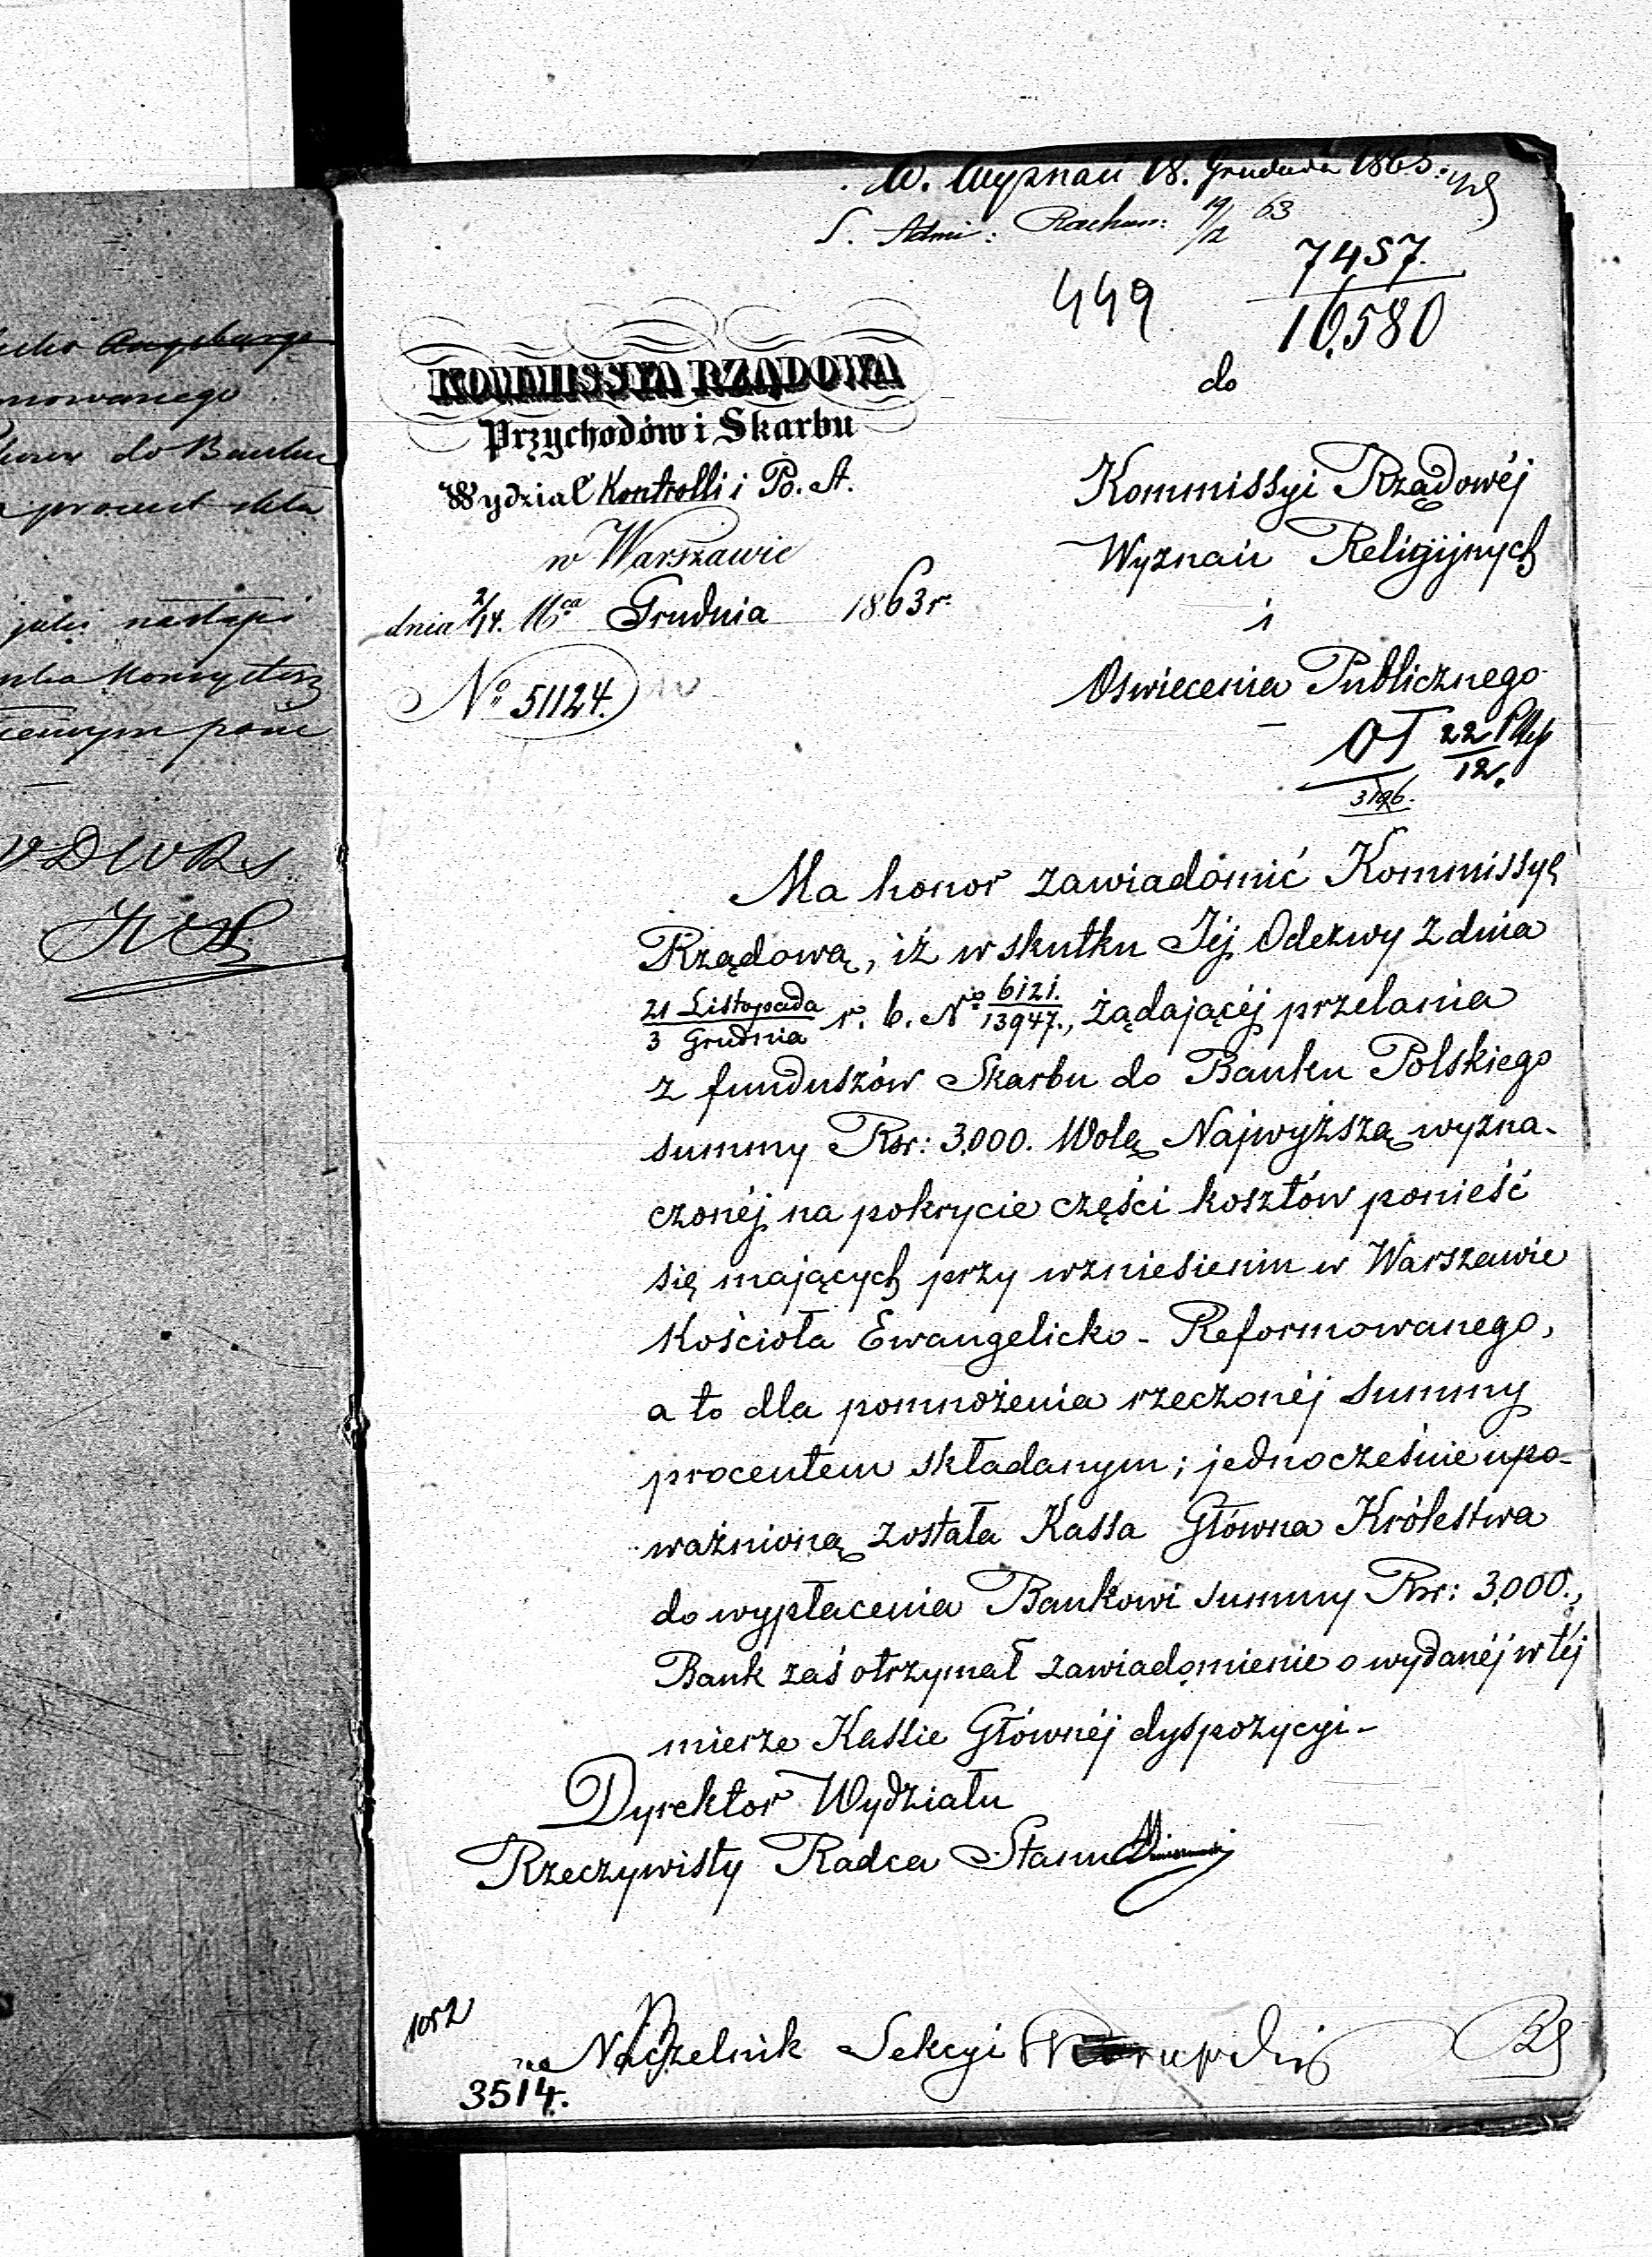 W. Wyznań 18. Grudnia 1863.
S. Admi: Rachun: 19/12 63
7457.
449
16,580
KOMMISSYA RZĄDOWA
Przychodów i Skarbu
Wydział Kontrolli i Po. A.
w Warszawie
dnia 2/14. Mca Grudnia 1863 r.
No 51124.
do
Kommissyi Rządowéj
Wyznań Religijnych
i
Oswiecenia Publicznego
22
12.
3196.
Ma honor zawiadomić Kommissyę
Rządową, iż w skutku Jéj Odezwy z dnia
21 Listopada / 3 Grudnia r. b. No 6121. / 13947., żądającéj przelania
z funduszów Skarbu do Banku Polskiego
summy Rsr: 3,000. Wolą Najwyższą wyzna-
czonéj na pokrycie części kosztów ponieść
się mających przy wzniesieniu w Warszawie
Kościoła Ewangelicko-Reformowanego,
a to dla pomnożenia rzeczonéj summy
procentem składanym; jednocześnie upo-
ważnioną została Kassa Główna Królestwa
do wypłacenia Bankowi summy Rsr: 3,000.,
Bank zaś otrzymał zawiadomienie o wydanéj w téj
mierze Kassie Głównéj dyspozycyi-
Dyrektor Wydziału
Rzeczywisty Radca Stanu
1052
Naczelnik Sekcyi
3514.
mowanego
do Banku
procent
nastąpi